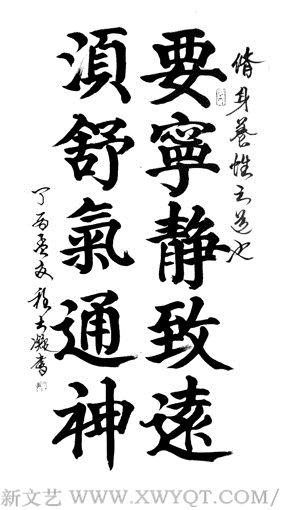 脩身養性之道也
要寧靜致遠
湏舒氣通神
丁酉孟書
新文艺 WWW.XWYQT.COM/